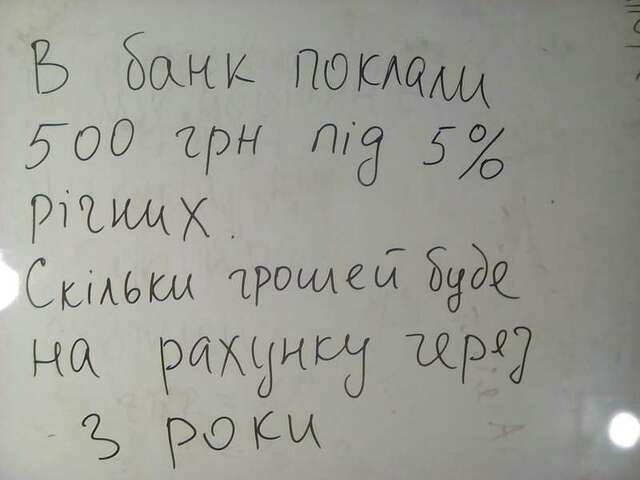 В банк поклали
500 грн під 5%
річних.
Скільки грошей буде
на рахунку через
3 роки